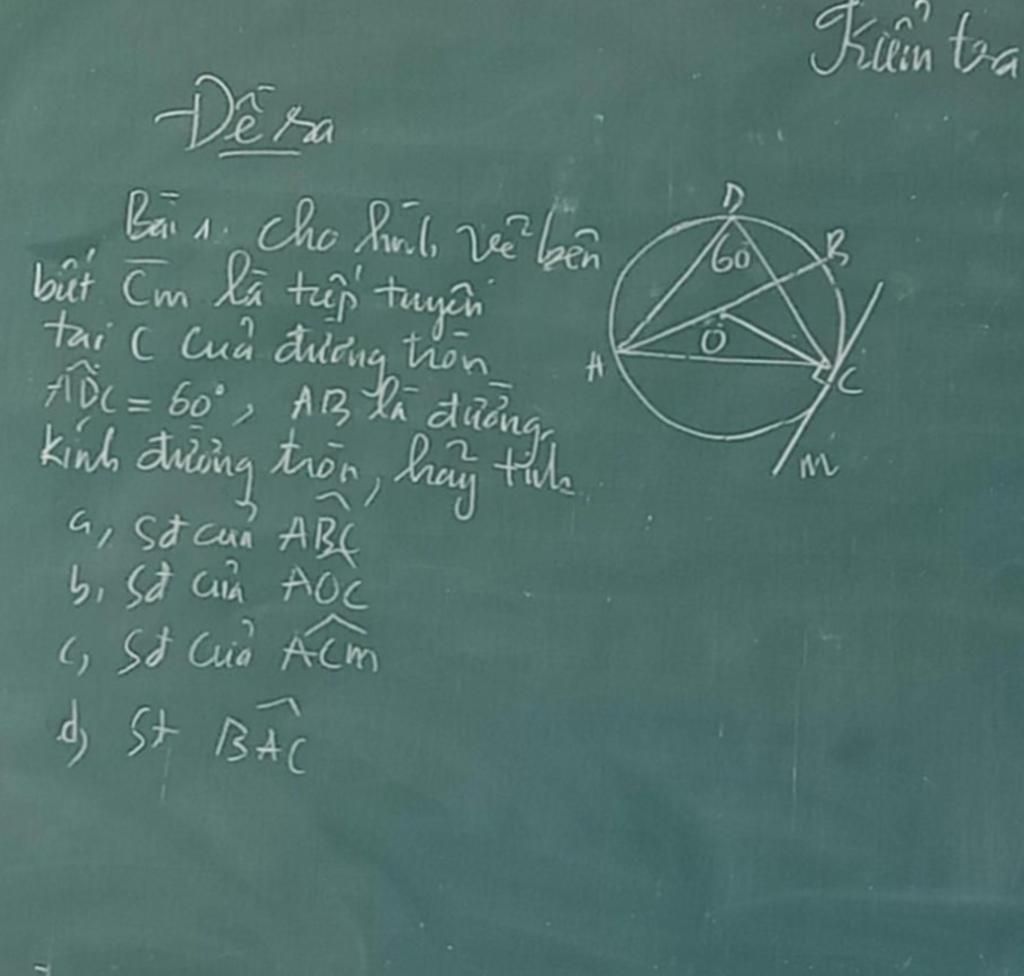 Kiểm tra
Đề ra
Bài 1. Cho hình vẽ bên
biết Cm là tiếp tuyến
tại C của đường tròn
ADC = 60°, AB là đường
kính đường tròn, hãy tính
a, Sđ của ABC
b, Sđ của AOC
c, Sđ của ACm
d, Sđ BAC
D
60
B
O
A
C
m